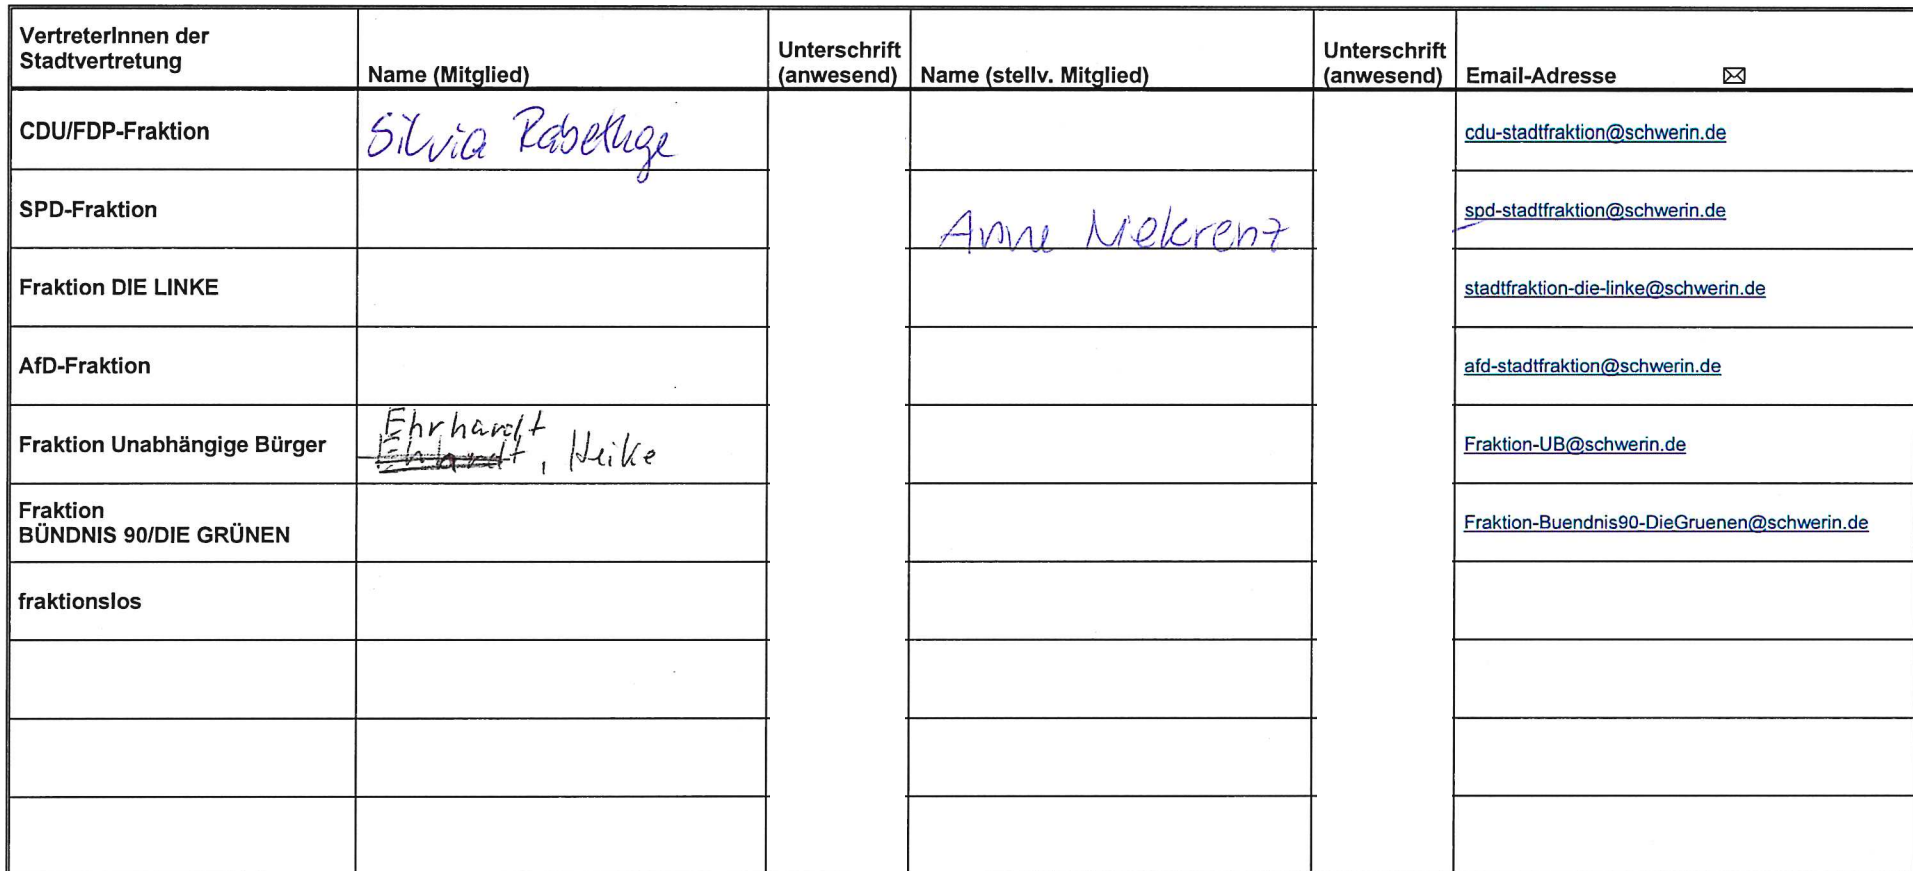 VertreterInnen der
Stadtvertretung
Name (Mitglied)
Unterschrift
(anwesend)
Name (stellv. Mitglied)
Unterschrift
(anwesend)
Email-Adresse ✉
CDU/FDP-Fraktion
Silvia Rabethge
cdu-stadtfraktion@schwerin.de
SPD-Fraktion
Anne Nekrenz
spd-stadtfraktion@schwerin.de
Fraktion DIE LINKE
stadtfraktion-die-linke@schwerin.de
AfD-Fraktion
afd-stadtfraktion@schwerin.de
Fraktion Unabhängige Bürger
Ehrhardt
Ehhardt, Heike
Fraktion-UB@schwerin.de
Fraktion
BÜNDNIS 90/DIE GRÜNEN
Fraktion-Buendnis90-DieGruenen@schwerin.de
fraktionslos